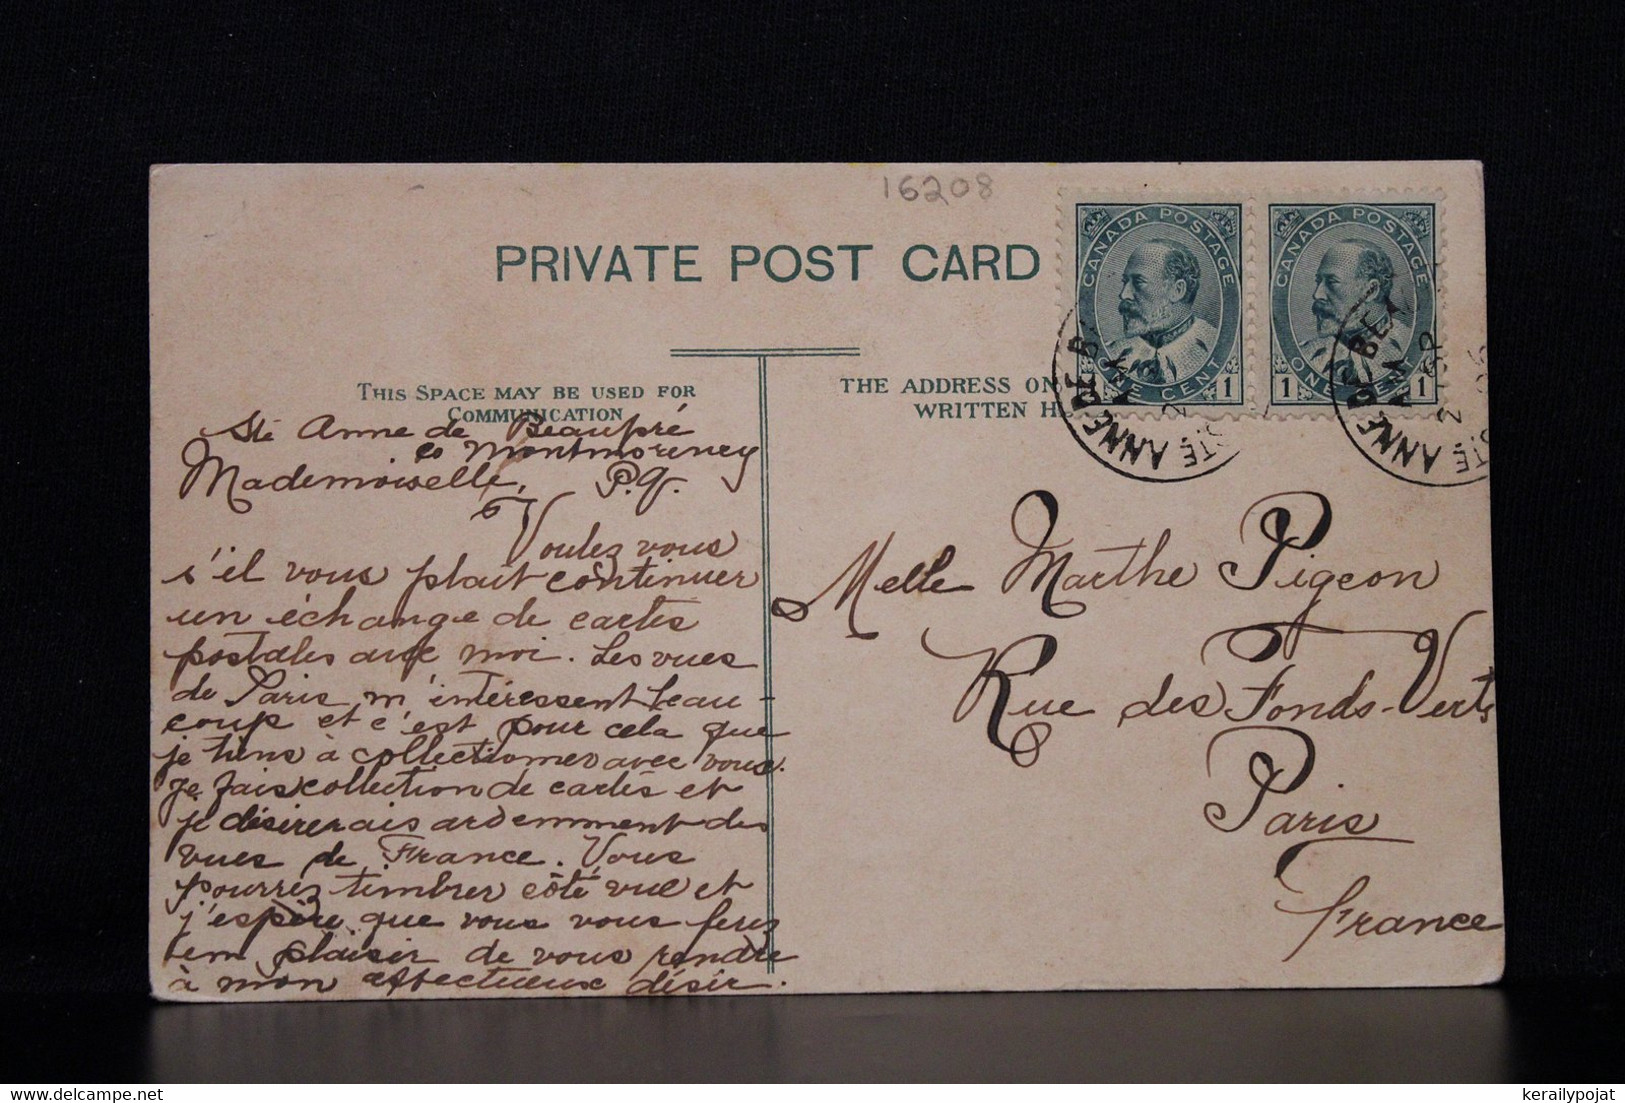 16208
CANADA POSTAGE
ONE CENT
1
CANADA POSTAGE
1 ONE CENT 1
PRIVATE POST CARD
STE ANNE DE BE
AM
STE ANNE DE BEA
AM
2 SP
06
THIS SPACE MAY BE USED FOR
COMMUNICATION
THE ADDRESS ON
WRITTEN H
Ste Anne de Beaupré
Co Montmorency
Mademoiselle, P.Q.
Voulez vous
s'il vous plait continuer
un échange de cartes
postales avec moi. Les vues
de Paris m'intéressent beau-
coup et c'est pour cela que
je tiens à collectionner avec vous.
Je fais collection de cartes et
je désirerais ardemment des
vues de France. Vous
pourrez timbrer côté vue et
j'espère que vous vous ferez
un plaisir de vous rendre
à mon affectueux désir.
Melle Marthe Pigeon
Rue des Fonds-Verts
Paris
France
kerailypojat